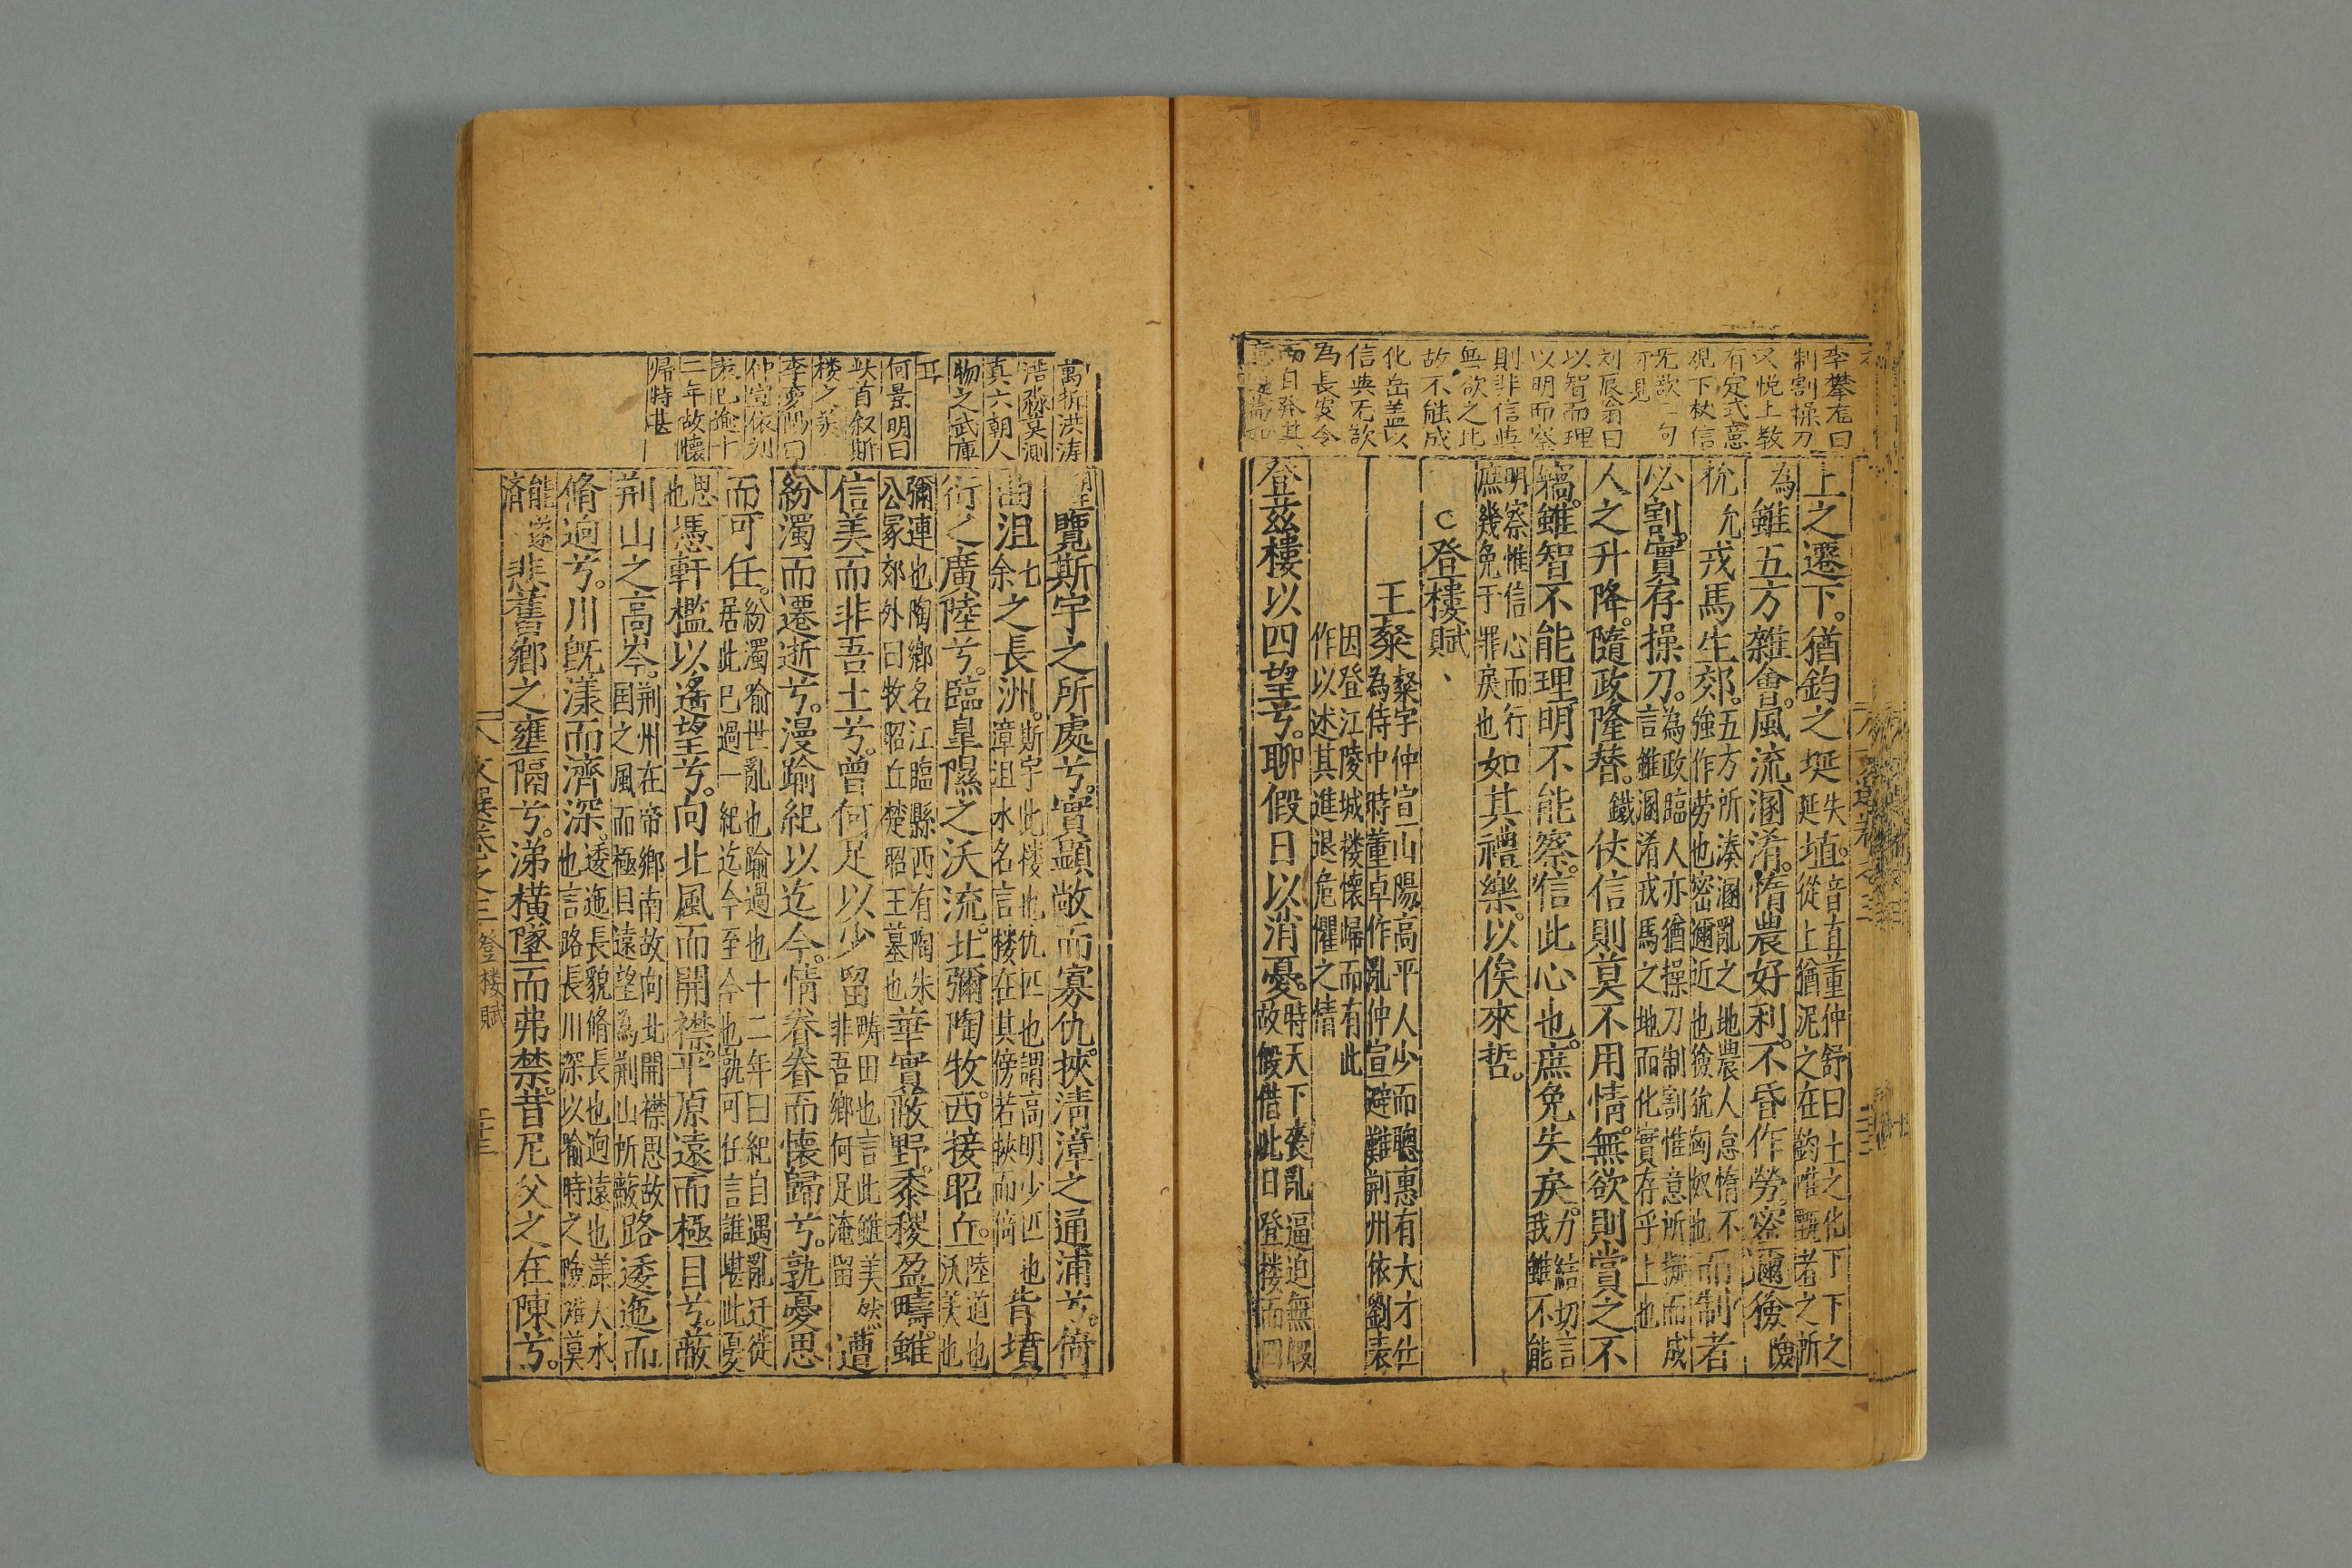 李攀龙曰
制割操刀
又悦上教
有定式意
观下杖信
无欲一句
可見
刘辰翁曰
以智而理
以明而察
則非信與
無欲之比
故不能成
化岳盖以
信與无欲
為長安令
而自發其
上之遷下。猶鈞之埏失埏埴。音直董仲舒曰上之化下下之從上猶泥之在鈞惟甄者之所
為雖五方雜會。風流溷淆。惰農好利。不昏作勞。密邇獫險
狁允戎馬生郊。五方所湊溷亂之地農人怠惰不強作勞也密邇近也獫狁匈奴也而制者
必割。實存操刀。為政臨人亦猶操刀制割惟意所擬而成言雖溷淆戎馬之地而化實存乎上也
人之升降。隨政隆替。鐵仗信則莫不用情。無欲則賞之不
竊。雖智不能理。明不能察。信此心也。庶免失戾。力結切言我雖不能
明察惟信心而行庶幾免于罪戾也如其禮樂。以俟來哲。
登樓賦
王粲粲字仲宣山陽高平人少而聰惠有大才仕為侍中時董卓作亂仲宣避難荊州依劉表
因登江陵城楼懷歸而有此作以述其進退危懼之情
登茲樓以四望兮。聊假日以消憂。時天下喪亂逼迫無暇故假借此日登楼而四
萬折洪涛
浩淼莫測
真六朝人
物之武庫
耳
何景明曰
此首叙斯
楼之美
李夢陽曰
仲宣依刘
表已逾十
二年故懷
歸特甚
望覽斯宇之所處兮。實顯敞而寡仇。挾清漳之通浦兮。倚
曲沮七余之長洲。斯宇此楼也仇匹也謂高明少匹也漳沮水名言楼在其傍若挾而倚皆墳
衍之廣陸兮。臨皐隰之沃流。北彌陶牧。西接昭丘。陸道也沃美也
彌連也陶鄉名江臨縣西有陶朱公冢郊外曰牧昭丘楚昭王墓也華實蔽野。黍稷盈疇。雖
信美而非吾土兮。曾何足以少留疇田也言此雖美然非吾鄉何足淹留遭
紛濁而遷逝兮。漫踰紀以迄今。情眷眷而懷歸兮。孰憂思
而可任。紛濁喻世亂也踰過也十二年曰紀自遇亂迁徙居此已過一紀迄今至今也孰可任言誰堪此憂
思也憑軒檻以遙望兮。向北風而開襟。平原遠而極目兮。蔽
荊山之高岑。荊州在帝鄉南故向北開襟思故国之風而極目遠望為荊山所蔽路逶迤而
脩迥兮。川既漾而濟深。逶迤長貌脩長也迥遠也漾大水也言路長川深以喻時之險难莫
能遂済悲舊鄉之壅隔兮。涕橫墜而弗禁。昔尼父之在陳兮。
文選卷之三 登楼賦